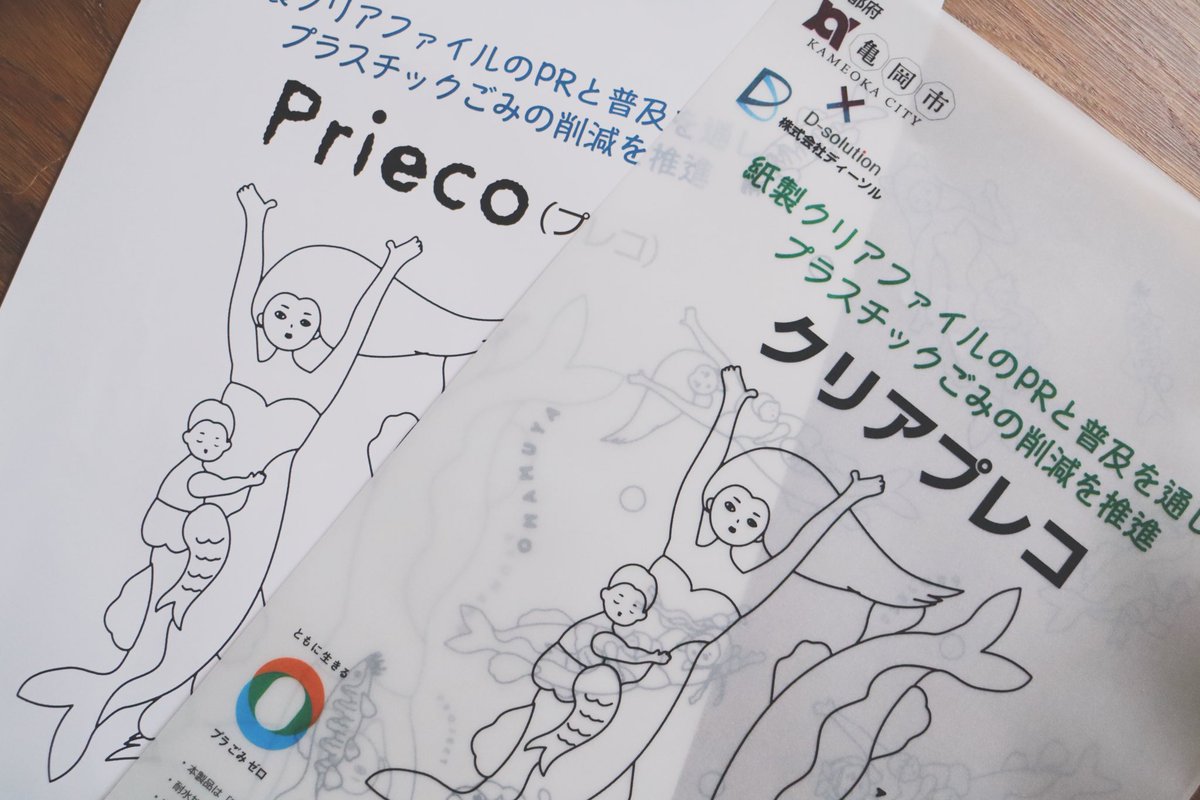 クリアファイルのPRと普及を通し
プラスチックごみの削減を推進
Prieco(プレコ)
都府
亀岡市
KAMEOKA CITY
×
D-solution
株式会社ディーソル
紙製クリアファイルのPRと普及を通し
プラスチックごみの削減を推進
クリアプレコ
AYUMANO
ともに生きる
プラごみ ゼロ
・本製品は
・耐水